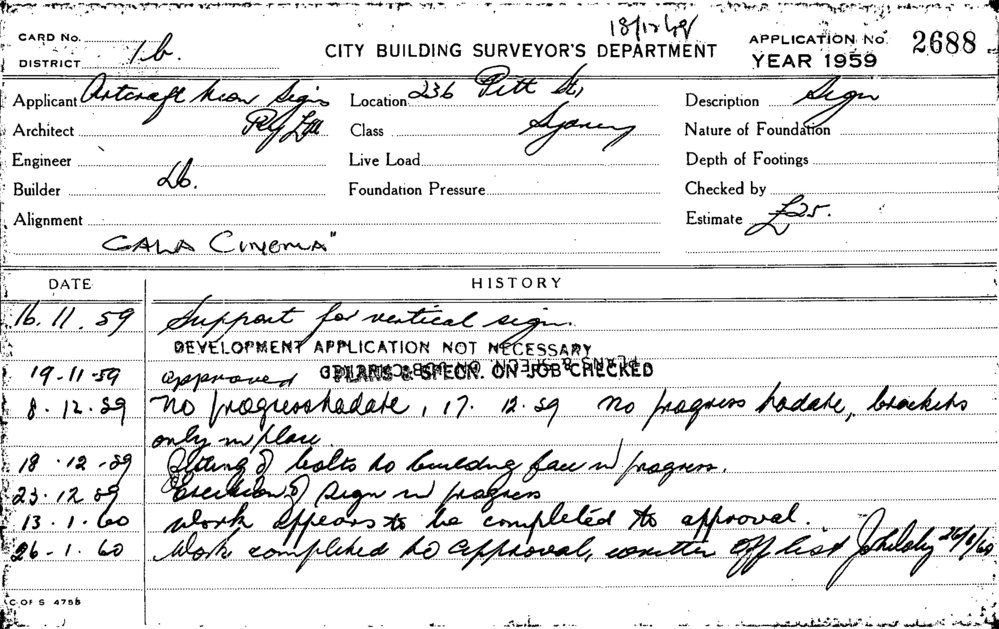 18/12/68
CARD No.
DISTRICT 1b.
CITY BUILDING SURVEYOR'S DEPARTMENT
APPLICATION No. 2688
YEAR 1959
Applicant Artcraft Neon Signs Pty Ltd
Location 236 Pitt St, Sydney
Description Sign
Architect
Class
Nature of Foundation
Engineer
Live Load
Depth of Footings
Builder Do.
Foundation Pressure
Checked by
Alignment
Estimate £25.
CALA CINEMA"
DATE HISTORY
16.11.59 Support for vertical sign.
DEVELOPMENT APPLICATION NOT NECESSARY
19-11-59 approved PLANS & SPECN. ON JOB CHECKED
8.12.59 No progress to date, 17.12.59 No progress to date, brackets
only in place.
18.12.59 Fitting of bolts to building face in progress.
23.12.59 Erection of sign in progress
13.1.60 Work appears to be completed to approval.
26-1.60 Work completed to approval, written off list 26/1/60
C OF S 4755